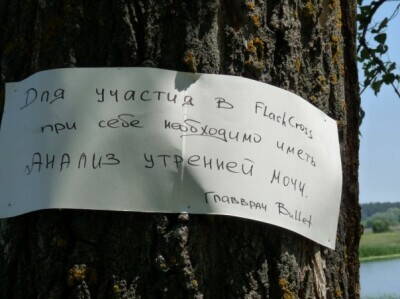 Для участия в FlashCross
при себе необходимо иметь
"АНАЛИЗ УТРЕННЕЙ МОЧИ.
Главврач Bullet